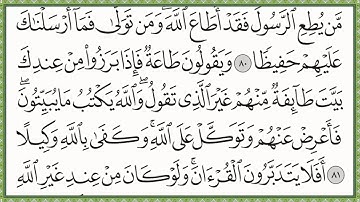 مَّن يُطِعِ ٱلرَّسُولَ فَقَدْ أَطَاعَ ٱللَّهَۖ وَمَن تَوَلَّىٰ فَمَآ أَرْسَلْنَٰكَ
عَلَيْهِمْ حَفِيظٗا ٨٠ وَيَقُولُونَ طَاعَةٞ فَإِذَا بَرَزُواْ مِنْ عِندِكَ
بَيَّتَ طَآئِفَةٞ مِّنْهُمْ غَيْرَ ٱلَّذِي تَقُولُۖ وَٱللَّهُ يَكْتُبُ مَا يُبَيِّتُونَۖ
فَأَعْرِضْ عَنْهُمْ وَتَوَكَّلْ عَلَى ٱللَّهِۚ وَكَفَىٰ بِٱللَّهِ وَكِيلًا
٨١ أَفَلَا يَتَدَبَّرُونَ ٱلْقُرْءَانَۚ وَلَوْ كَانَ مِنْ عِندِ غَيْرِ ٱللَّهِ